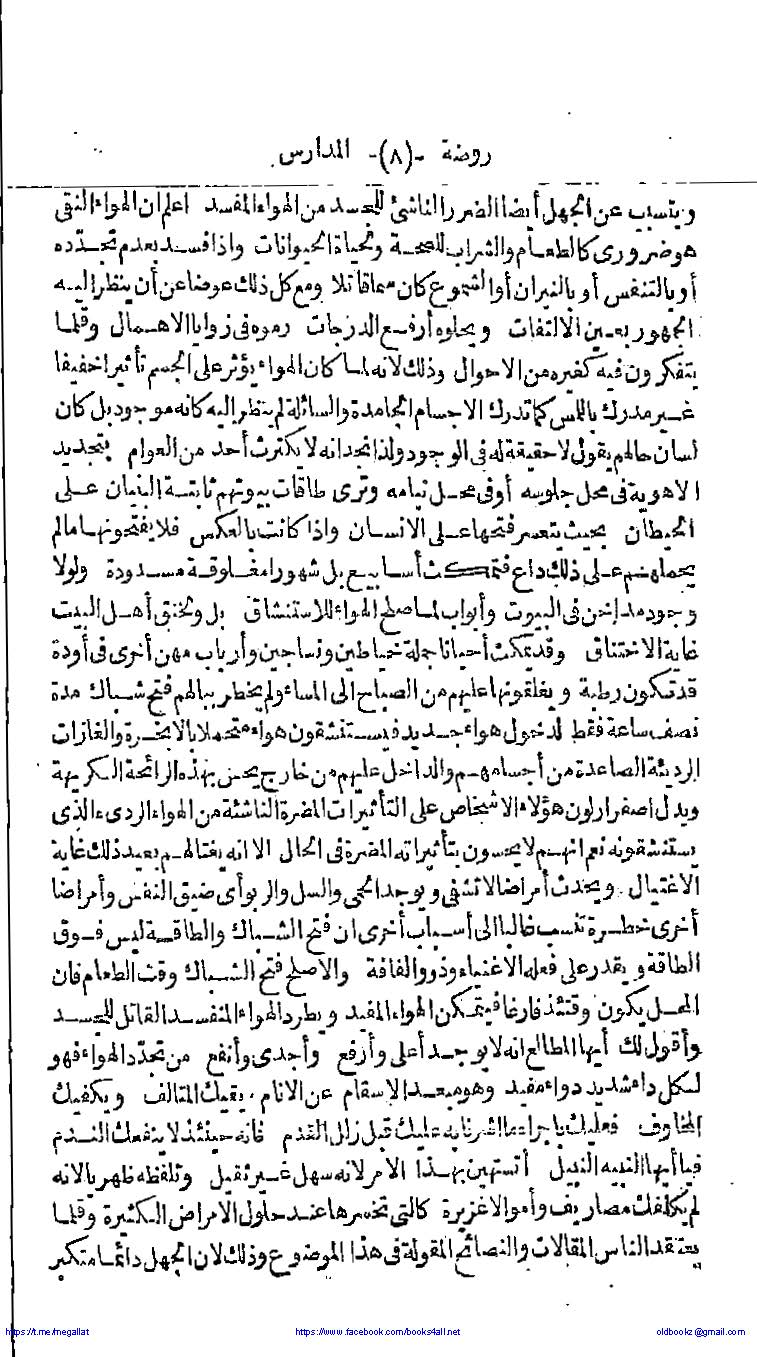 روضة -(٨)- المدارس
ويتسبب عن الجهل أيضا الضرر الناشئ للجسد من الهواء المفسد اعلم ان الهواء النقى
هو ضرورى كالطعام والشراب للصحة ولحياة الحيوانات واذا فسد بعدم تجدّده
أو بالتنفس أو بالنيران أو الشموع كان سما قاتلا ومع كل ذلك عوضا عن أن ينظر اليه
الجمهور بعين الالتفات ويحلوه أرفع الدرجات رموه فى زوايا الاهمال وقلما
يتفكرون فيه كغيره من الاحوال وذلك لانه لما كان الهواء يؤثر على الجسم تأثيرا خفيفا
غير مدرك باللمس كما تدرك الاجسام الجامدة والسائلة لم ينظر اليه كانه موجود بل كان
لسان حالهم يقول لا حقيقة له فى الوجود ولذا نجد انه لا يكترث أحد من العوام بتجديد
الاهوية فى محل جلوسه أو فى محل نيامه وترى طاقات بيوتهم ثابتة البنيان على
الحيطان بحيث يتعسر فتحها على الانسان واذا كانت بالعكس فلا يفتحونها مالم
يحملهم على ذلك داع فتمكث أسابيع بل شهورا مغلوقة مسدودة ولولا
وجود مداخن فى البيوت وأبواب لما صلح الهواء للاستنشاق بل ولخنق أهل البيت
غاية الاختناق وقد يمكث أحيانا جملة خياطين ونساجين وأرباب مهن أخرى فى أودة
قد تكون رطبة ويغلقونها عليهم من الصباح الى المساء ولم يخطر ببالهم فتح شباك مدة
نصف ساعة فقط لدخول هواء جديد فيستنشقون هواء متحملا بالابخرة والغازات
الرديئة الصاعدة من أجسامهم والداخل عليهم من خارج يحس بهذه الرائحة الكريهة
ويدل اصفرار لون هؤلاء الاشخاص على التأثيرات المضرة الناشئة من الهواء الردىء الذى
يستنشقونه نعم انهم لا يحسون بتأثيراته المضرة فى الحال الا انه يغتالهم بعيد ذلك غاية
الاغتيال ويحدث أمراضا لا تشفى ويوجد الحمى والسل والربو أى ضيق النفس وأمراضا
أخرى خطرة تنسب غالبا الى أسباب أخرى ان فتح الشباك والطاقة ليس فوق
الطاقة ويقدر على فعله الاغنياء وذوو الفاقة والاصلح فتح الشباك وقت الطعام فان
المحل يكون وقتئذ فارغا فيتمكن الهواء المفيد ويطرد الهواء المنفسد القاتل للجسد
وأقول لك أيها المطالع انه لا يوجد أعلى وأرفع وأجدى وأنفع من تجدّد الهواء فهو
لكل داء شديد دواء مفيد وهو مبعد الاسقام عن الانام يقيك المتالف ويكفيك
المخاوف فعليك باجراء ما اشرنا به عليك قبل زلل القدم فانه حينئذ لا ينفعك الندم
فيا أيها النبيه النبيل أتستهين بهذا الامر لانه سهل غير ثقيل وتلفظه ظهريا لانه
لم يكلفك مصاريف وأموالا غزيرة كالتى تخسرها عند حلول الامراض الكثيرة وقلما
يعتقد الناس المقالات والنصائح المقولة فى هذا الموضوع وذلك لان الجهل دائما متكبر
https://t.me/megallat
https://www.facebook.com/books4all.net
oldbookz@gmail.com